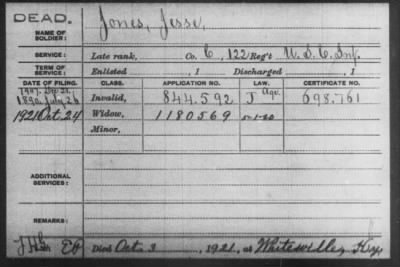 DEAD.
NAME OF SOLDIER: Jones, Jesse,
SERVICE: Late rank, Co. C, 122 Reg't U. S. C. Inf.
TERM OF SERVICE: Enlisted , 1 Discharged , 1
DATE OF FILING. CLASS. APPLICATION NO. LAW. CERTIFICATE NO.
1907. Dec 21.
1890. July 26 Invalid, 844.592 J 698.761
1921 Oct 24 Widow, 1180569
Minor,
ADDITIONAL SERVICES:
REMARKS:
Died Oct. 3, 1921, at Whitesville, Ky.